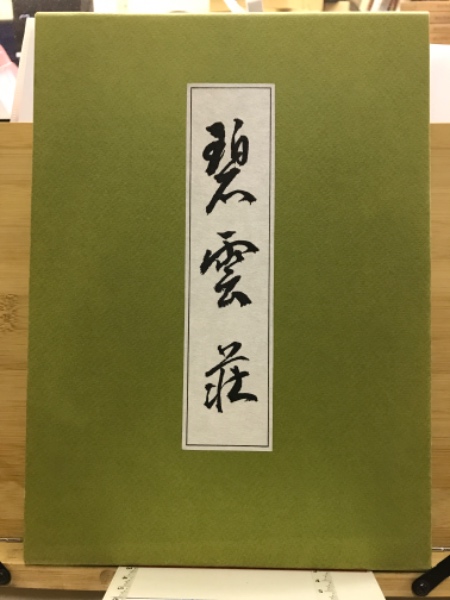 碧雲荘